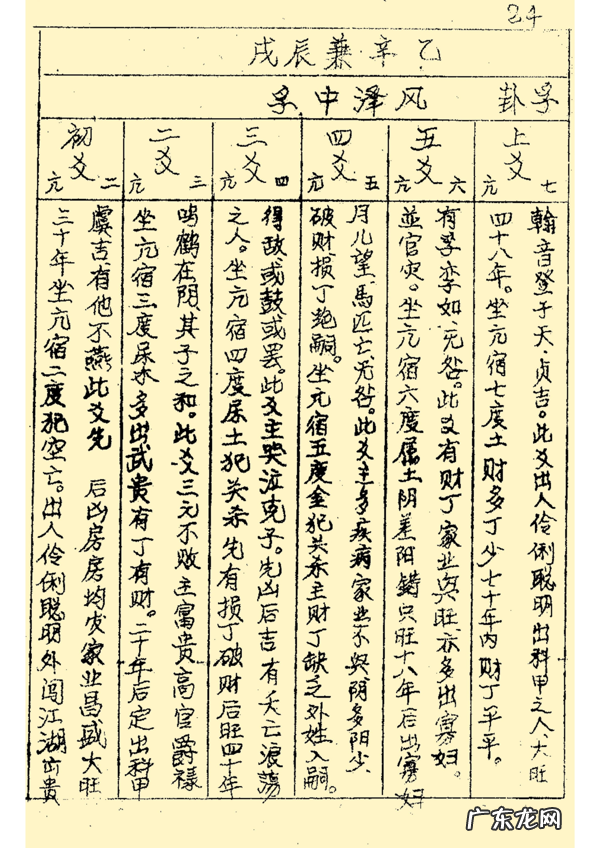 24
乙辛兼辰戌
孚卦 风泽中孚
上爻
亢 七
翰音登于天,贞吉。此爻出人伶俐聪明出科甲之人大旺
四十八年。坐亢宿七度土财多丁少七十年内财丁平平。
五爻
亢 六
有孚挛如,无咎。此爻有财丁家业兴旺亦多出寡妇。
並官灾。坐亢宿六度属土阴差阳错只旺十八年后出寡妇
四爻
亢 五
月几望,馬匹亡,无咎。此爻主多疾病家业不兴阴多阳少
破财损丁绝嗣。坐亢宿五度金犯关杀主财丁缺乏外姓入嗣。
三爻
亢 四
得敌或鼓或罢。此爻主哭泣克子。先凶后吉有夭亡浪荡
之人。坐亢宿四度尿土犯关杀先有损丁破财后旺四十年
二爻
亢 三
鸣鹤在阴,其子之和。此爻三元不败主富贵高官爵禄
坐亢宿三度尿水多出武贵有丁有财。二十年后定出科甲
初爻
亢 二
虞吉有他不燕此爻先 后凶房房均发家业昌盛大旺
三十年坐亢宿二度犯空亡。出人伶俐聪明外闯江湖出贵
广东龙网